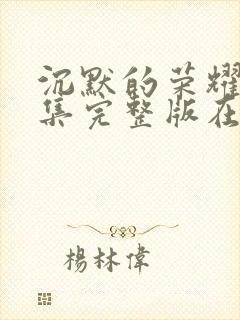 沉默的荣耀
集完整版在
楊林偉